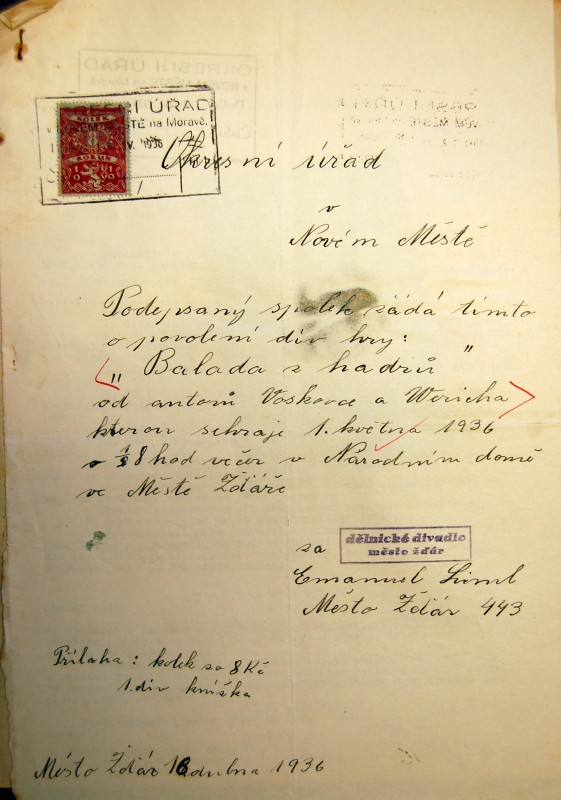 ÚŘAD
MĚSTĚ na Moravě.
1936
KOLEK
KORUN
Okresní úřad
v
Novém Městě
Podepsaný spolek žádá tímto
o povolení div hry:
„Balada z hadrů"
od autorů Voskovce a Wericha
kterou sehraje 1. května 1936
o ½ 8 hod večer v Národním domě
ve Městě Žďáře
za
dělnické divadlo
město žďár
Emanuel
Město Žďár 443
Příloha: kolek za 8 Kč
1. div knížka
Město Žďár 18 dubna 1936